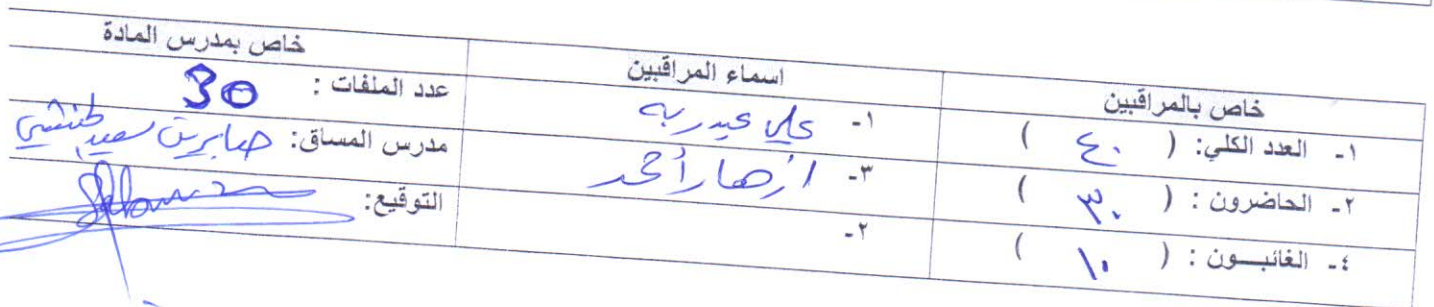 خاص بالمراقبين
اسماء المراقبين
خاص بمدرس المادة
١- العدد الكلي: ( ٤٠ )
١- علي عبدربه
عدد الملفات : 30
٢- الحاضرون : ( ٣٠ )
٣- ازهار أحمد
مدرس المساق: صابرين سعيد
٤- الغائبـــون : ( ١٠ )
٢-
التوقيع: